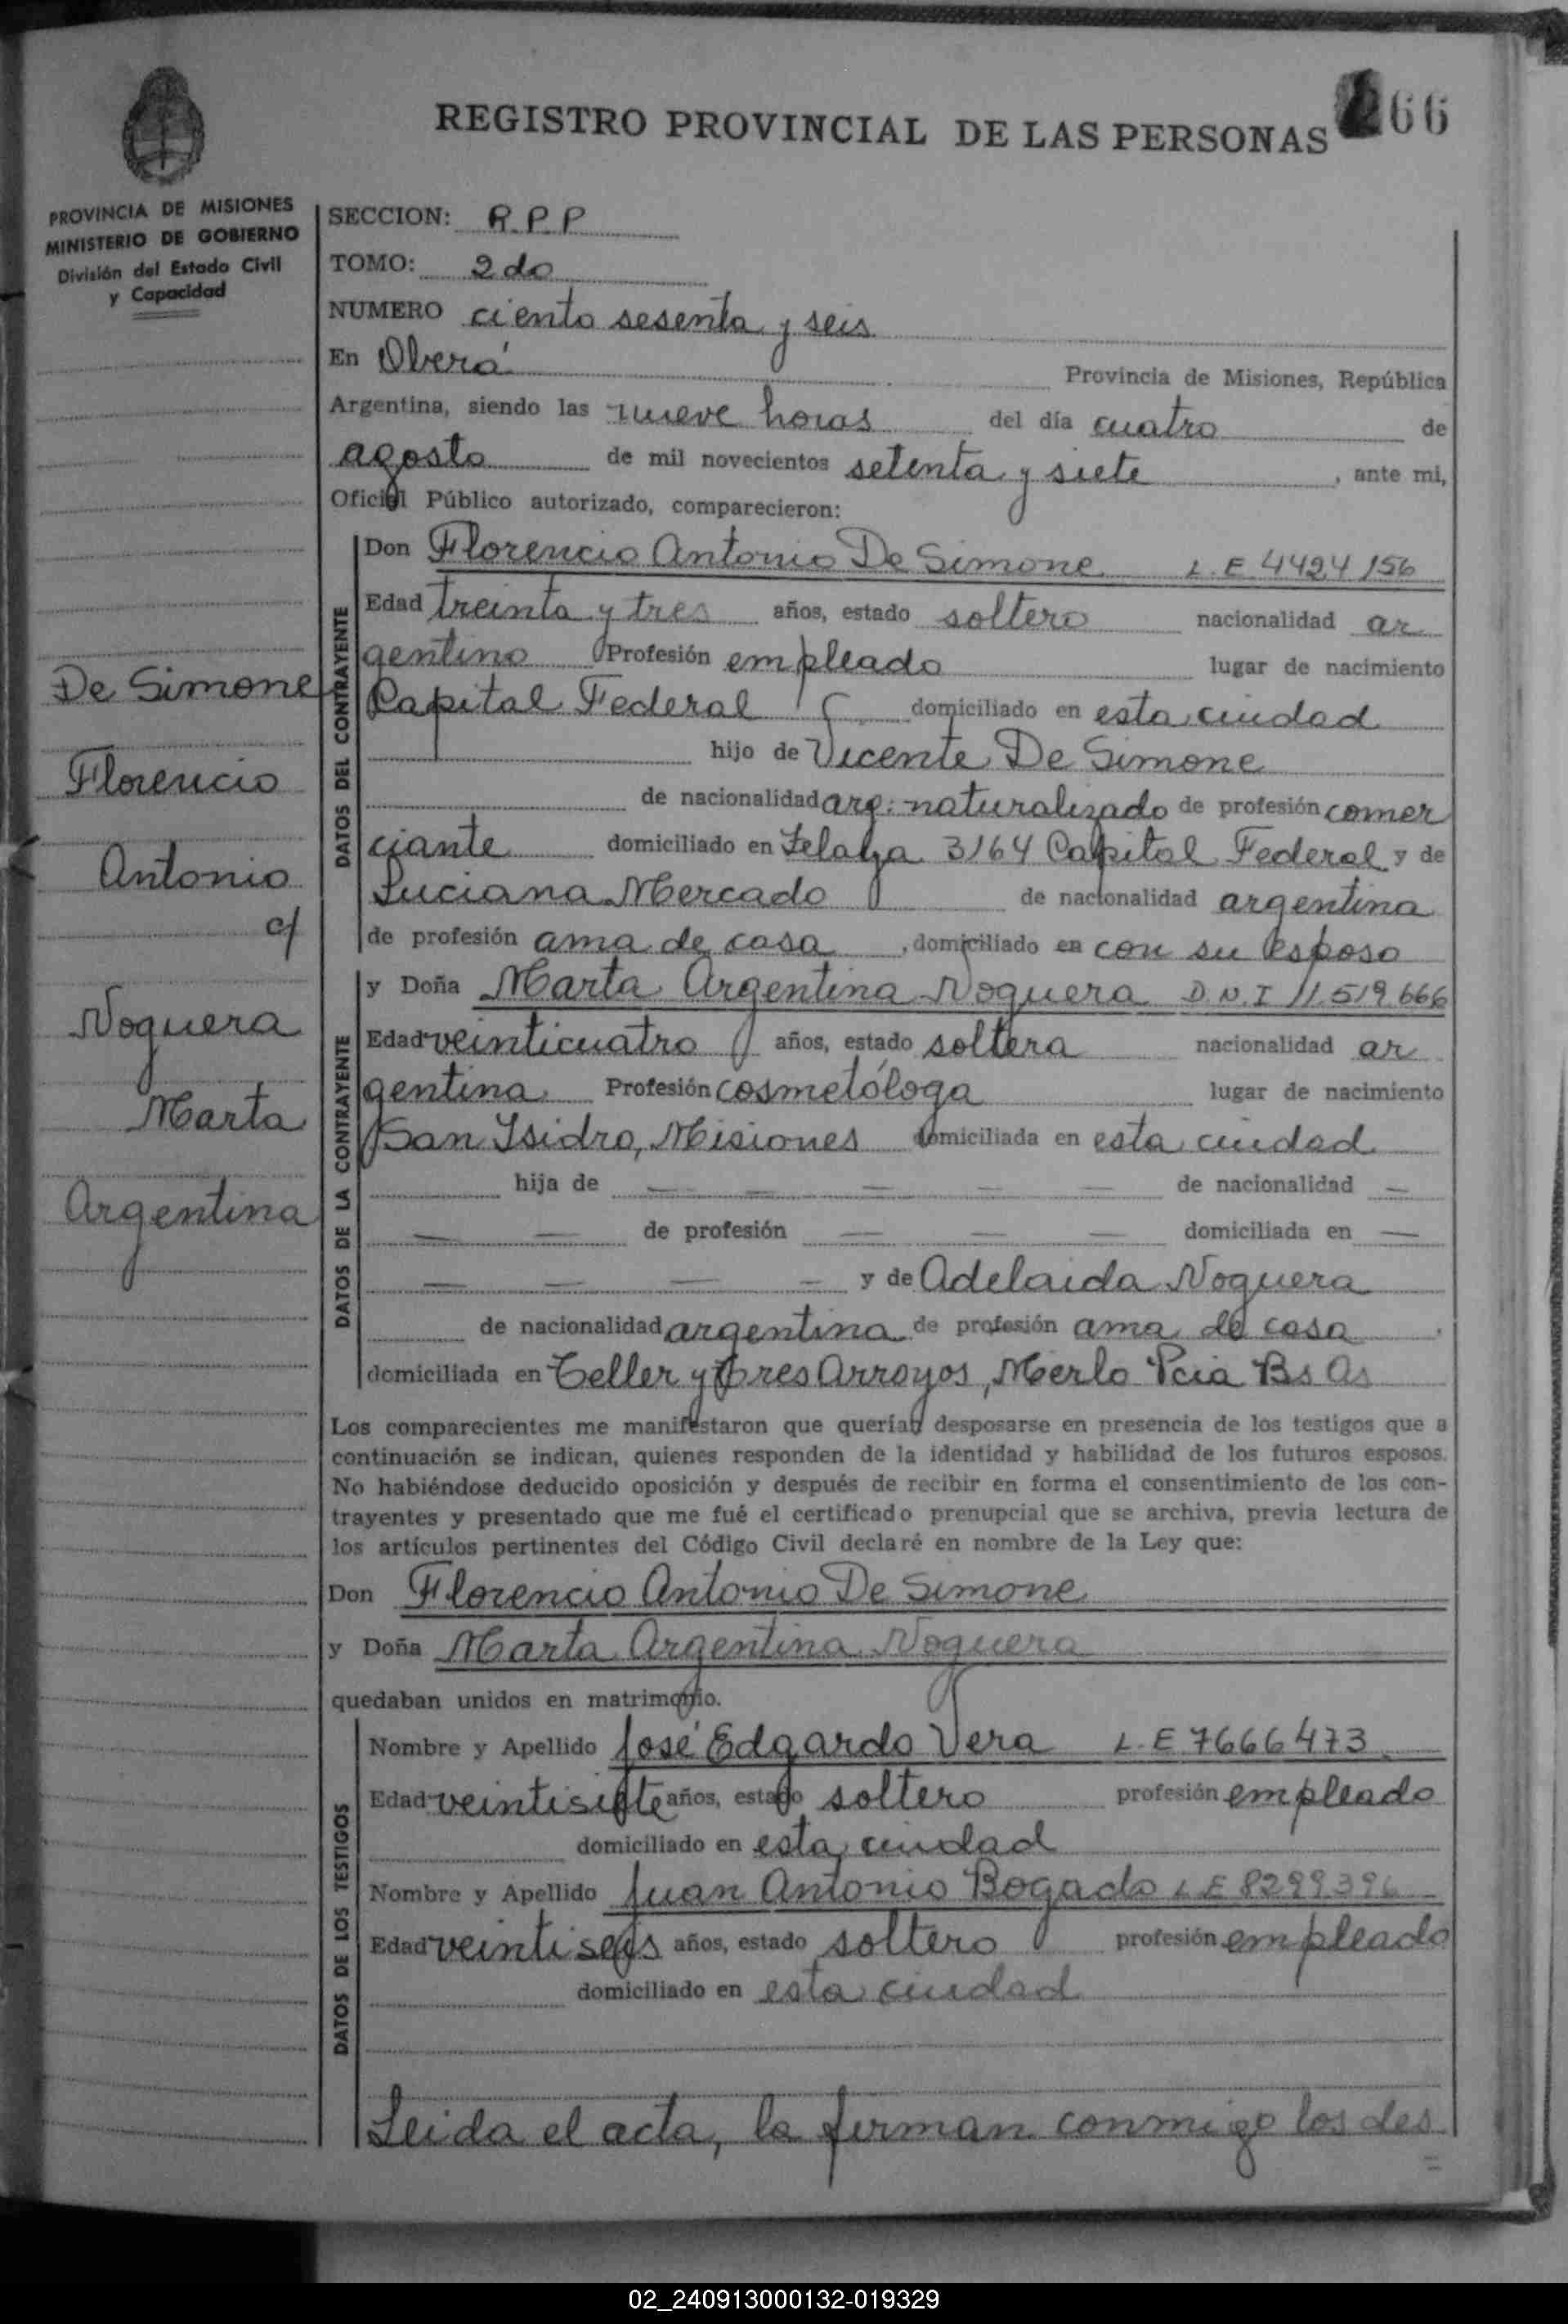 REGISTRO PROVINCIAL DE LAS PERSONAS 66
PROVINCIA DE MISIONES
MINISTERIO DE GOBIERNO
División del Estado Civil
y Capacidad
SECCION: R.P.P
TOMO: 2do
NUMERO ciento sesenta y seis
En Oberá Provincia de Misiones, República
Argentina, siendo las nueve horas del día cuatro de
agosto de mil novecientos setenta y siete, ante mi,
Oficial Público autorizado, comparecieron:
De Simone
Florencio
Antonio
c/
Noguera
Marta
Argentina
DATOS DEL CONTRAYENTE
Don Florencio Antonio De Simone L.E 4424156
Edad treinta y tres años, estado soltero nacionalidad ar
gentino Profesión empleado lugar de nacimiento
Capital Federal domiciliado en esta ciudad
hijo de Vicente De Simone
de nacionalidad arg. naturalizado de profesión comer
ciante domiciliado en Zelaya 3164 Capital Federal y de
Luciana Mercado de nacionalidad argentina
de profesión ama de casa, domiciliado en con su esposo
DATOS DE LA CONTRAYENTE
y Doña Marta Argentina Noguera D.N.I 11.519.666
Edad veinticuatro años, estado soltera nacionalidad ar
gentina Profesión cosmetóloga lugar de nacimiento
San Isidro, Misiones domiciliada en esta ciudad
hija de — — — — — de nacionalidad —
— — de profesión — — — domiciliada en —
— — — — y de Adelaida Noguera
de nacionalidad argentina de profesión ama de casa
domiciliada en Celler y Tres Arroyos, Merlo Pcia Bs As
Los comparecientes me manifestaron que querían desposarse en presencia de los testigos que a
continuación se indican, quienes responden de la identidad y habilidad de los futuros esposos.
No habiéndose deducido oposición y después de recibir en forma el consentimiento de los con-
trayentes y presentado que me fué el certificado prenupcial que se archiva, previa lectura de
los artículos pertinentes del Código Civil declaré en nombre de la Ley que:
Don Florencio Antonio De Simone
y Doña Marta Argentina Noguera
quedaban unidos en matrimonio.
DATOS DE LOS TESTIGOS
Nombre y Apellido José Edgardo Vera L.E 7666473
Edad veintisiete años, estado soltero profesión empleado
domiciliado en esta ciudad
Nombre y Apellido Juan Antonio Bogado L.E 8299396
Edad veintiseis años, estado soltero profesión empleado
domiciliado en esta ciudad
Leida el acta, la firman conmigo los des
=
02_240913000132-019329